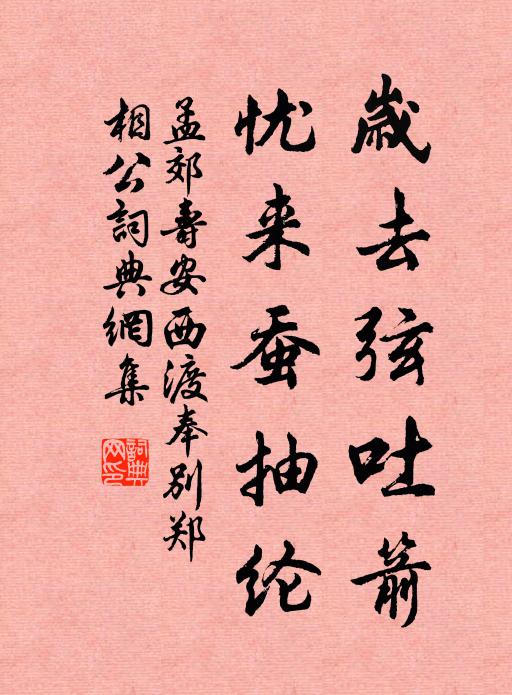 歲去弦吐箭
忧来蚕抽纶
孟郊壽安西渡奉别郑
相公詞典網集
詞典网印